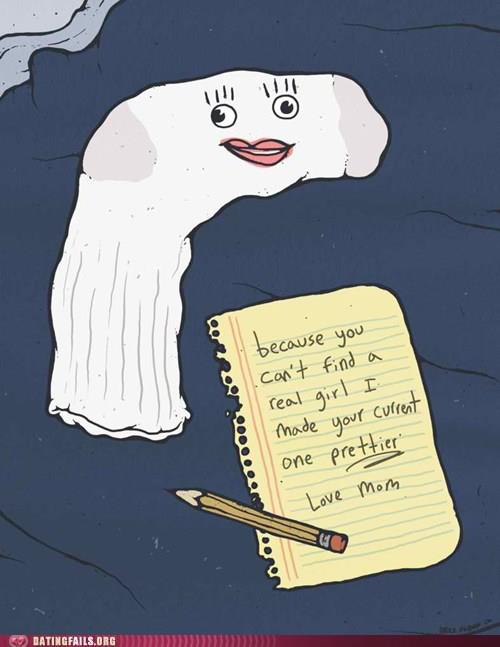 because you
can't find a
real girl I
made your current
one prettier
Love Mom
DATINGFAILS.ORG